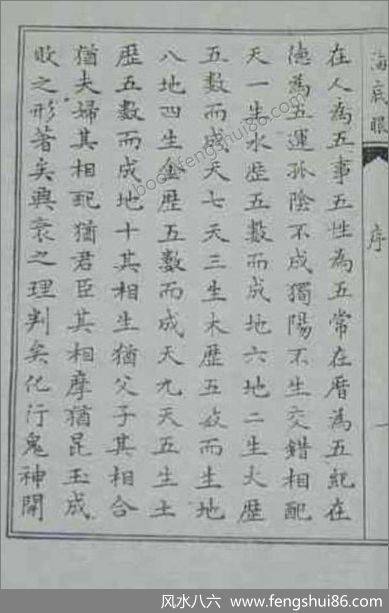 海底眼
序
一
在人為五事五性為五常在曆為五紀在
德為五運孤陰不成獨陽不生交錯相配
天一生水歷五數而成地六地二生火歷
五數而成天七天三生木歷五数而生地
八地四生金歷五數而成天九天五生土
歷五數而成地十其相生猶父子其相合
猶夫婦其相配猶君臣其相摩猶昆玉成
敗之形著矣興衰之理判矣化行鬼神開
book.fengshui86.com
风水八六 www.fengshui86.com